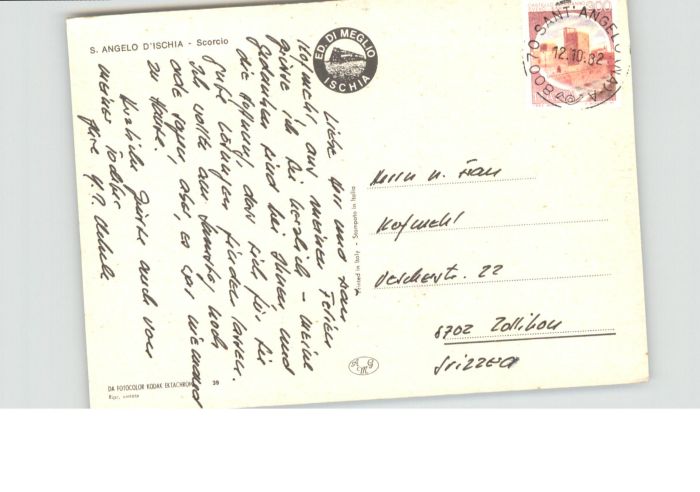 S. ANGELO D'ISCHIA - Scorcio
ED. DI MEGLIO
ISCHIA
300
80070 SANT'ANGELO
12.10.82
Liebe und Frau
Hofmehl, aus meinen Ferien
grüsse ich Sie herzlich - meine
Gedanken sind bei Ihnen und
die Hoffnung, dass sich für Sie
gute Lösungen finden lassen.
Ich wollte am noch
aber es war niemand
zu Hause.
Herzliche Grüsse auch von
meiner Tochter
Ihre
Printed in Italy - Stampato in Italia
Herrn u. Frau
Hofmehl
22
8702 Zollikon
Svizzera
A G M
DA FOTOCOLOR KODAK EKTACHROME
39
Ripr. vietata